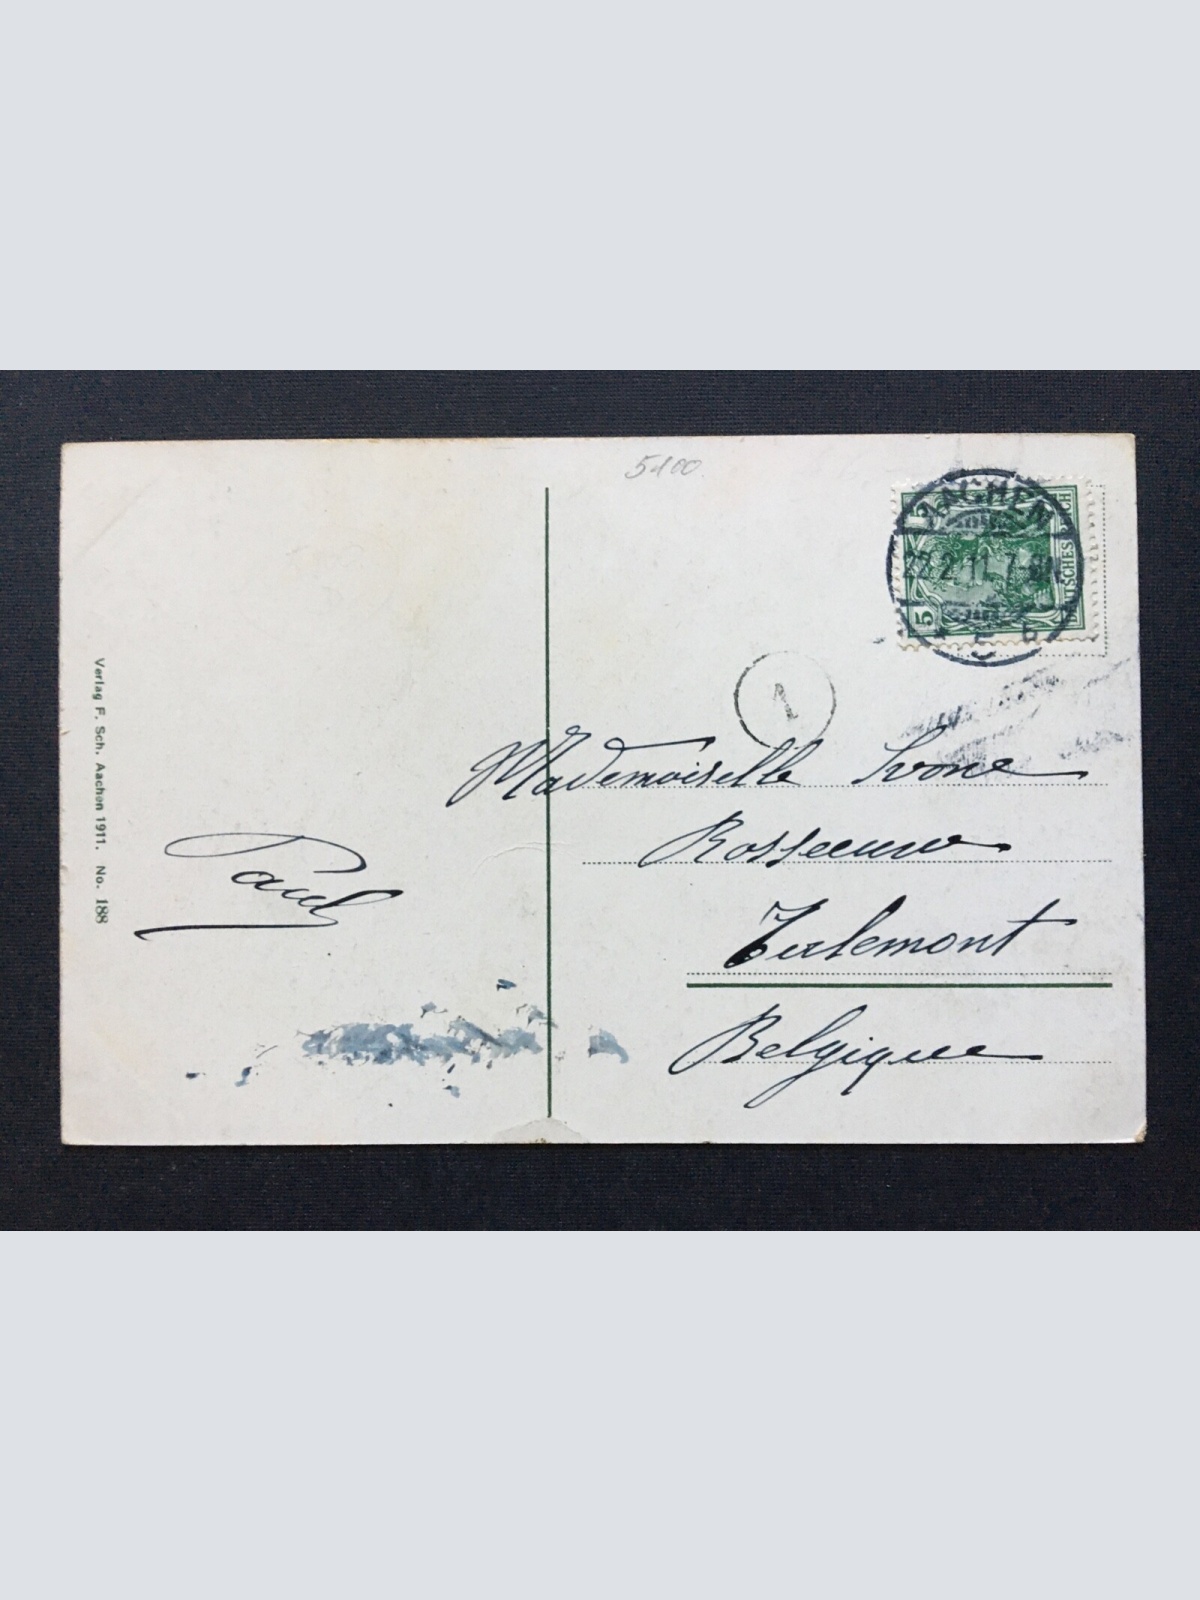 5100
AACHEN
22.2.11.7-8N.
5
DEUTSCHES REICH
1
Mademoiselle Ivone
Rosseeuw
Tirlemont
Belgique
Paul
Verlag F. Sch. Aachen 1911. No. 188